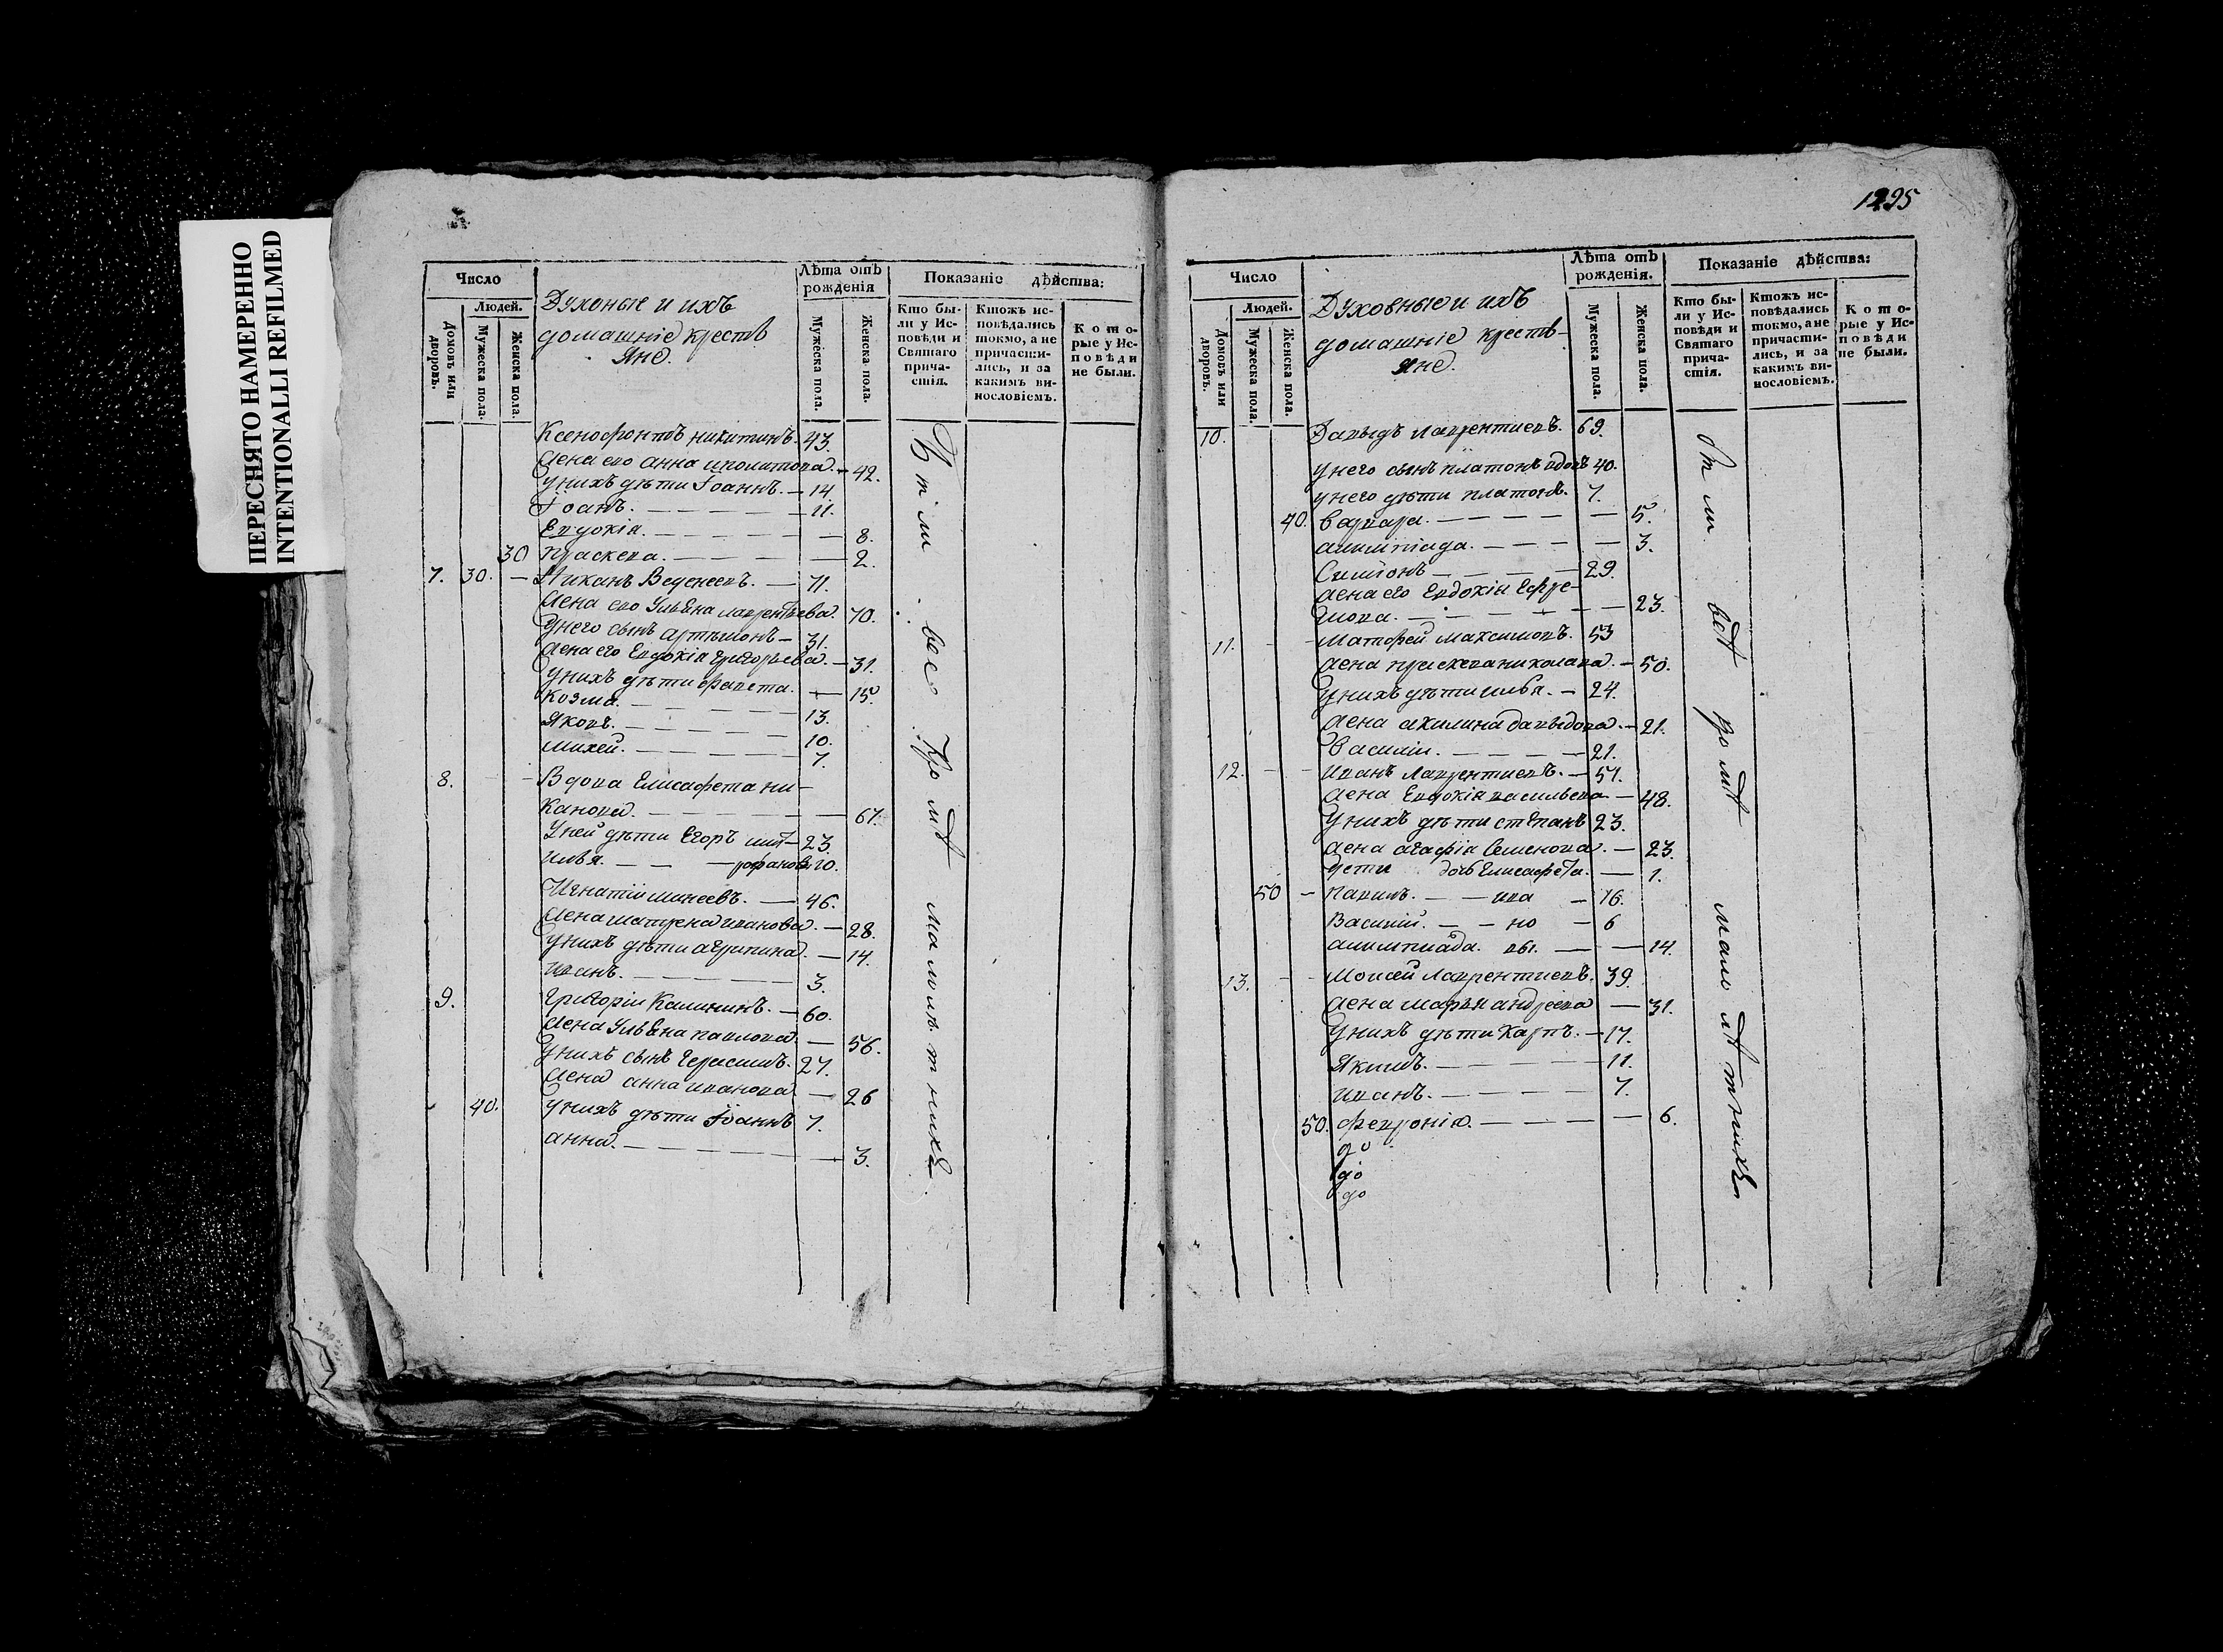 ПЕРЕСНЯТО НАМЕРЕННО
INTENTIONALLI REFILMED
Число
Людей.
Домовъ или дворовъ.
Мужеска пола.
Женска пола.
Духоные и ихъ
домашніе крестъ
яне.
Лѣта отъ
рожденія
Мужеска пола.
Женска пола.
Показаніе дѣйства:
Кто бы-
ли у Ис-
повѣди и
Святаго
прича-
стія.
Ктожъ ис-
повѣдались
токмо, а не
причасти-
лись, и за
какимъ ви-
нословіемъ.
Кото-
рые у Ис-
повѣди
не были.
Ксенофонтъ никитинъ. 43.
Жена его анна иполитова. — 42.
Унихъ дѣти Іоаннъ. — 14.
Іоанъ. — 11.
Евдокіа. — 8.
30 Праскева. — 2.
7. 30. — Никанъ Веденеевъ. — 71.
Жена его Ульяна лаврентьева. 70.
Унего сынъ артѣмонъ — 31.
Жена его Евдокіа григорьева. — 31.
Унихъ дѣти фавста. — 15.
Козма. — 13.
Яковъ. — 10.
михей. — 7.
8. — Вдова Елисафета ни-
канова. — 67.
Уней дѣти Егоръ мит — 23.
илья. — рофановъ 20.
Игнатій минеевъ. — 46.
Жена матрена иванова. — 28.
Унихъ дѣти агрипина. — 14.
иванъ. — 3.
9. Григоріи Калининъ. — 60.
Жена Ульяна павлова. — 56.
Унихъ сынъ герасимъ. 27.
Жена анна иванова — 26
40. Унихъ дѣти Іоаннъ 7.
анна. — 3.
вес кромѣ малолѣтнихъ
1295
Число
Людей.
Домовъ или дворовъ.
Мужеска пола.
Женска пола.
Духовные и ихъ
домашніе крестъ-
яне.
Лѣта отъ
рожденія.
Мужеска пола.
Женска пола.
Показаніе дѣйства:
Кто бы-
ли у Ис-
повѣди и
Святаго
прича-
стія.
Ктожъ ис-
повѣдались
токмо, а не
причасти-
лись, и за
какимъ ви-
нословіемъ.
Кото-
рые у Ис-
повѣди
не были.
10. Давыдъ лаврентиевъ. 69.
унего сынъ платонъ вдовъ 40.
унего дѣти платонъ. 7.
40. варвара. — 5.
алимпіада. — 3.
Симіонъ — 29.
жена его Евдокіи Ефре-
мова. — 23.
11. — Матфей Максимовъ. 53
жена праскева николава. — 50.
Унихъ дѣти илья. — 24.
Жена акилина давыдова. — 21.
Василіи. — 21.
12. — Иванъ лаврентиевъ. — 51.
Жена Евдокіа васильева — 48.
Унихъ дѣти степанъ 23.
Жена агафіа семенова. — 23.
дети дочь Елисафета. — 1.
50 — Павилъ. — ива — 16.
Василій. — но — 6
алимпиада. вы. — 14.
13. — Моисей лаврентиевъ. 39.
Жена марья андреева — 31.
Унихъ дѣти Карпъ. — 17.
Якимъ. — 11.
иванъ. — 7.
50. феврониа. — 6.
до
до
до
всѣ кромѣ малолѣтнихъ